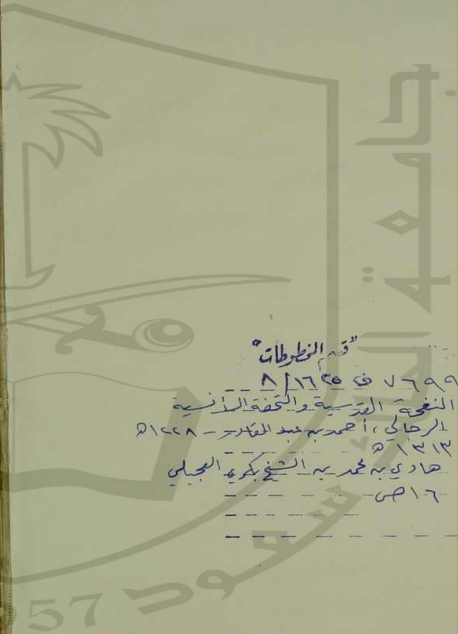 "قسم المخطوطات"
٧٦٩٩ ف ١٦٢٥ / ٨
النفحة القدسية والتحفة الأنسية
الرحالي، أحمد بن عبد القادر - ١٢٢٨ هـ
١٣١٣ هـ
هادي بن محمد بن الشيخ بكري العجيلي
١٦ ص
جامعة الملك سعود
1957